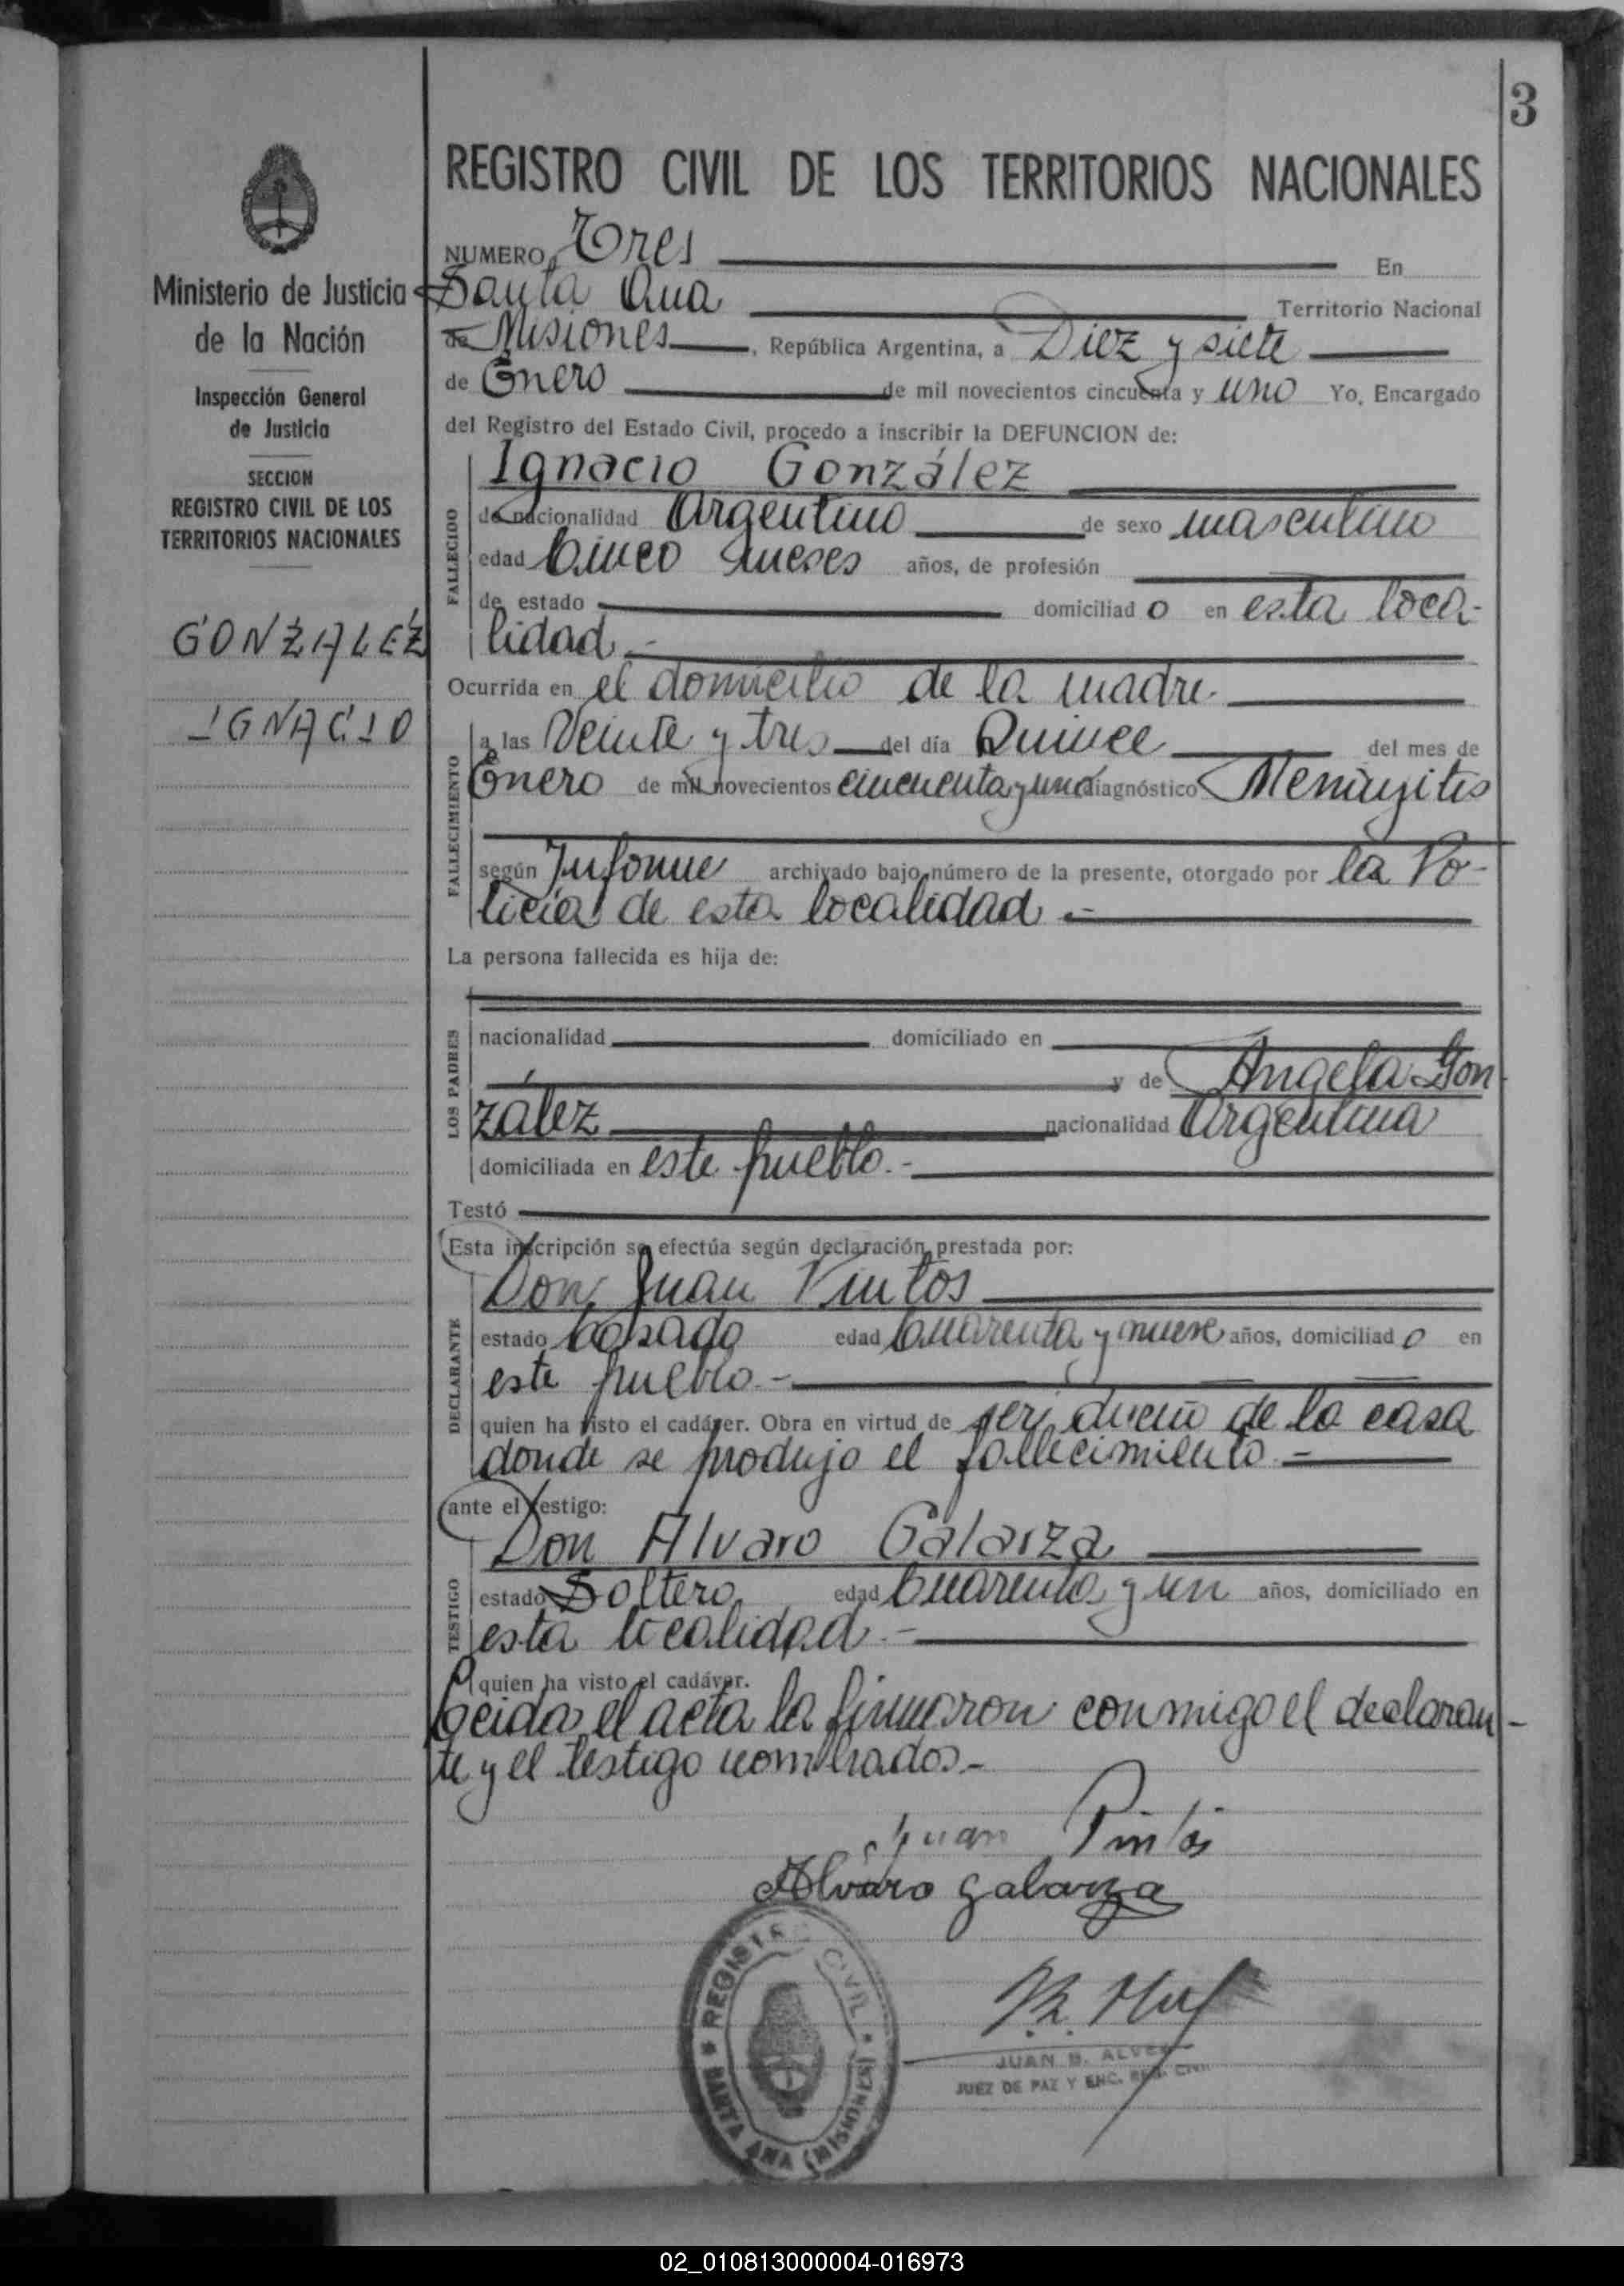 3
REGISTRO CIVIL DE LOS TERRITORIOS NACIONALES
Ministerio de Justicia
de la Nación
Inspección General
de Justicia
SECCION
REGISTRO CIVIL DE LOS
TERRITORIOS NACIONALES
GONZALEZ
IGNACIO
NUMERO Tres En
Santa Ana Territorio Nacional
de Misiones, República Argentina, a Diez y siete
de Enero de mil novecientos cincuenta y uno Yo, Encargado
del Registro del Estado Civil, procedo a inscribir la DEFUNCION de:
FALLECIDO
Ignacio González
de nacionalidad Argentino de sexo masculino
edad Cinco meses años, de profesión
de estado domiciliado en esta loca-
lidad.-
Ocurrida en el domicilio de la madre.
FALLECIMIENTO
a las Veinte y tres del día Quince del mes de
Enero de mil novecientos cincuenta y uno diagnóstico Meningitis
según Informe archivado bajo número de la presente, otorgado por la Po-
licía de esta localidad.-
La persona fallecida es hija de:
LOS PADRES
nacionalidad domiciliado en
y de Angela Gon
zález nacionalidad Argentina
domiciliada en este pueblo.-
Testó
Esta inscripción se efectúa según declaración prestada por:
DECLARANTE
Don Juan Pintos
estado Casado edad Cuarenta y nueve años, domiciliado en
este pueblo.-
quien ha visto el cadáver. Obra en virtud de ser dueño de la casa
donde se produjo el fallecimiento.-
ante el testigo:
TESTIGO
Don Alvaro Galarza
estado Soltero edad Cuarenta y un años, domiciliado en
esta localidad.-
quien ha visto el cadáver.
Leida el acta la firmaron conmigo el declaran-
te y el testigo nombrados.-
Juan Pintos
Alvaro Galarza
REGISTRO CIVIL
SANTA ANA (MISIONES)
JUAN B. ALVES
JUEZ DE PAZ Y ENC. REG. CIVIL
02_010813000004-016973